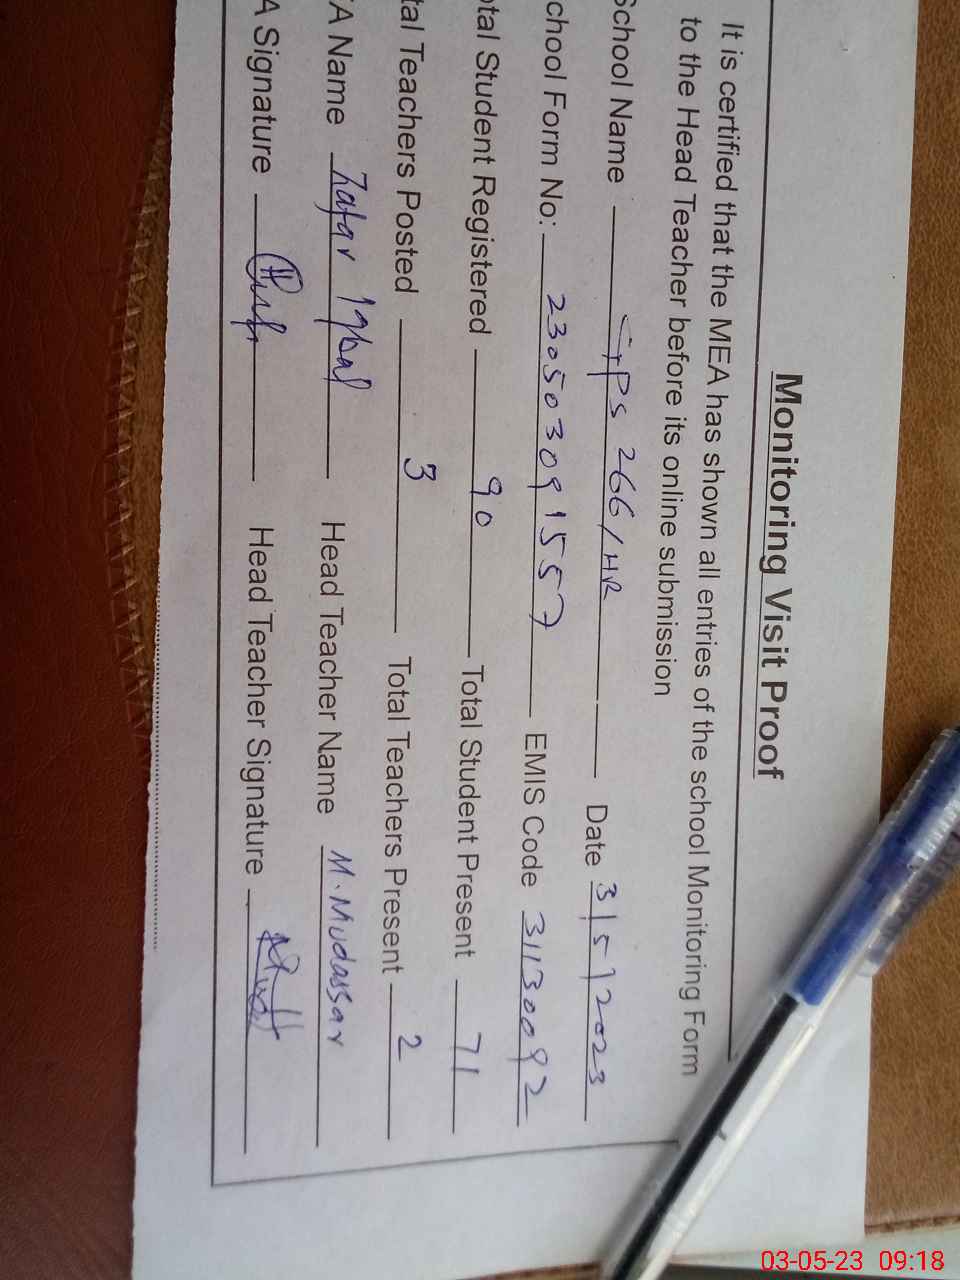 Monitoring Visit Proof
It is certified that the MEA has shown all entries of the school Monitoring Form
to the Head Teacher before its online submission
School Name GPS 266/HR Date 3/5/2023
chool Form No: 230503091557 EMIS Code 31130092
otal Student Registered 90 Total Student Present 71
tal Teachers Posted 3 Total Teachers Present 2
A Name Zafar Iqbal Head Teacher Name M. Mudassar
A Signature Head Teacher Signature
03-05-23 09:18